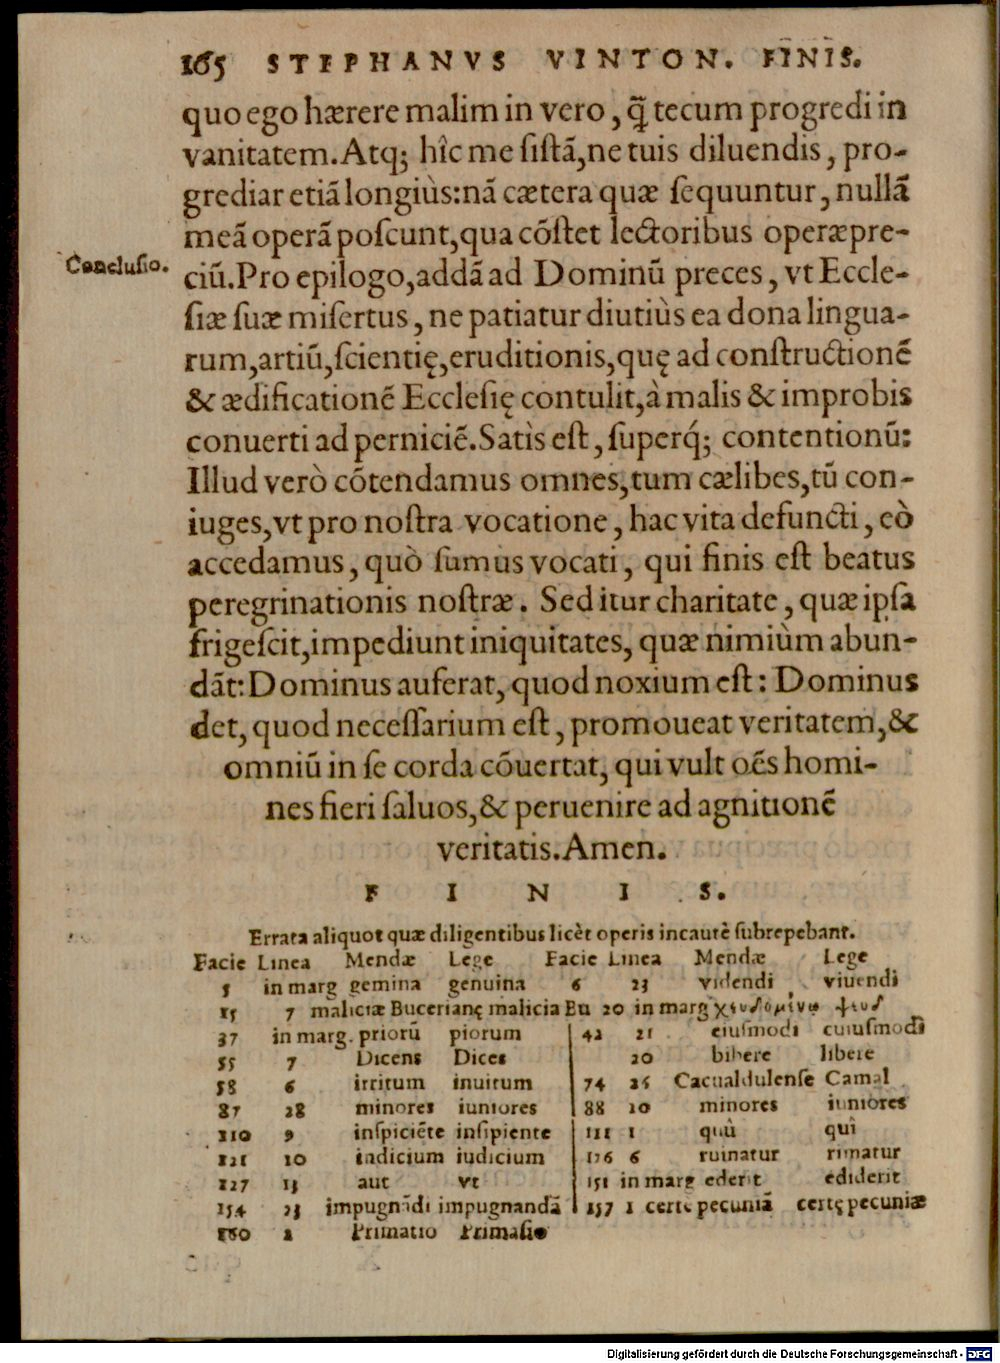 165 STEPHANVS VINTON. FINIS.
quo ego hærere malim in vero, q̃ tecum progredi in
vanitatem. Atq; hîc me ſiſtã, ne tuis diluendis, pro-
grediar etiã longiùs: nã cætera quæ ſequuntur, nullã
meã operã poſcunt, qua cõſtet lectoribus operæpre-
Concluſio.
ciũ. Pro epilogo, addã ad Dominũ preces, vt Eccle-
ſiæ ſuæ miſertus, ne patiatur diutiùs ea dona lingua-
rum, artiũ, ſcientię, eruditionis, quę ad conſtructionẽ
& ædificationẽ Eccleſię contulit, à malis & improbis
conuerti ad perniciẽ. Satìs eſt, ſuperq́; contentionũ:
Illud verò cõtendamus omnes, tum cælibes, tũ con-
iuges, vt pro noſtra vocatione, hac vita defuncti, eò
accedamus, quò ſumus vocati, qui finis eſt beatus
peregrinationis noſtræ. Sed itur charitate, quæ ipſa
frigeſcit, impediunt iniquitates, quæ nimiùm abun-
dãt: Dominus auferat, quod noxium eſt: Dominus
det, quod neceſſarium eſt, promoueat veritatem, &
omniũ in ſe corda cõuertat, qui vult oẽs homi-
nes fieri ſaluos, & peruenire ad agnitionẽ
veritatis. Amen.
F I N I S.
Errata aliquot quæ diligentibus licèt operis incautè ſubrepebant.
Facie Linea Mendæ Lege Facie Linea Mendæ Lege
5 in marg gemina genuina 6 23 videndi viuendi
15 7 maliciæ Bucerianę malicia Bu 20 in marg
37 in marg. priorũ piorum 42 21 eiuſmodi cuiuſmodi
55 7 Dicens Dices 20 bibere libere
58 6 irritum inuitum 74 25 Cacualdulenſe Camal
87 28 minores iuniores 88 20 minores iuniores
110 9 inſpiciẽte inſipiente 111 1 quù quî
121 10 indicium iudicium 126 6 ruinatur rimatur
127 13 aut vt 151 in marg ederit ediderit
154 23 impugnãdi impugnandã 157 1 certe pecuniã certę pecuniæ
160 2 Primatio Primaſio
Digitalisierung gefördert durch die Deutsche Forschungsgemeinschaft - DFG